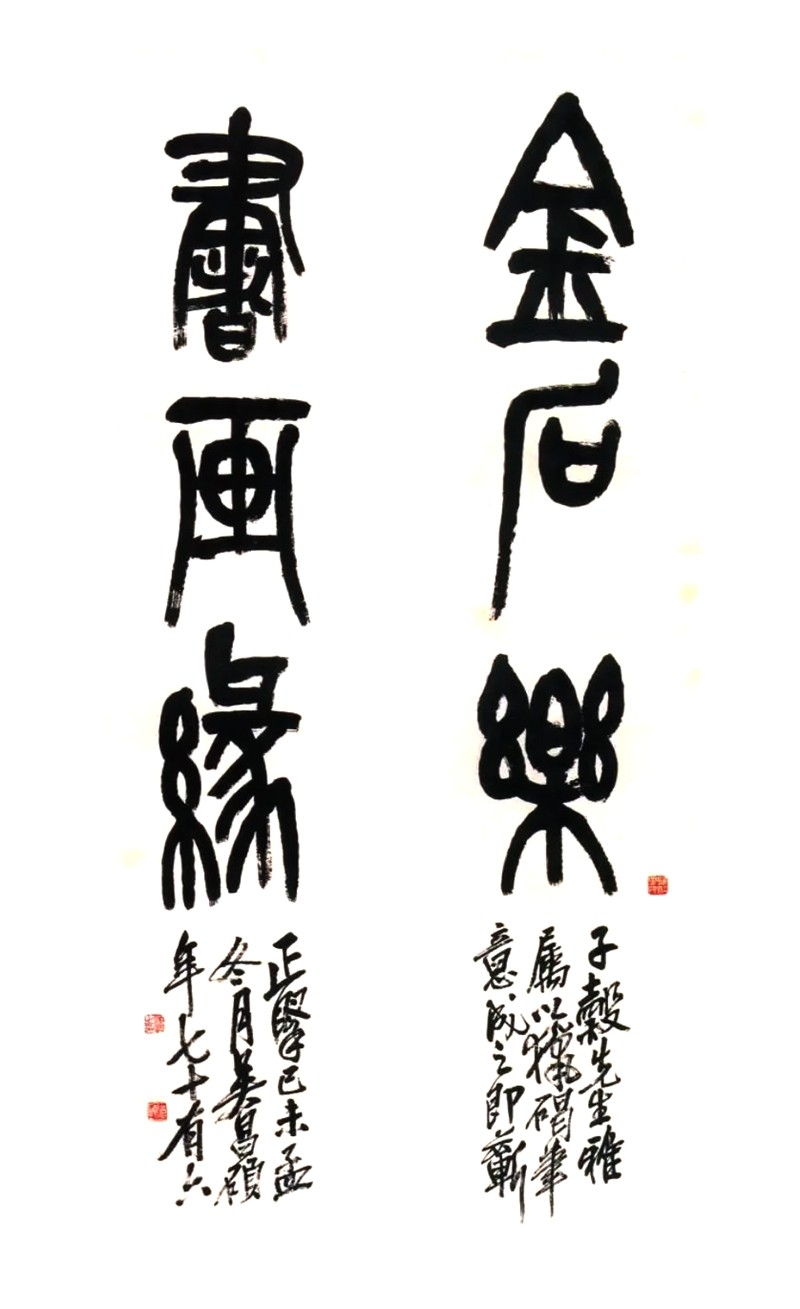 金石樂
書画緣
子穀先生雅
屬以獵碣筆
意成之即蘄
正擥己未孟
冬月吳昌碩
年七十有六